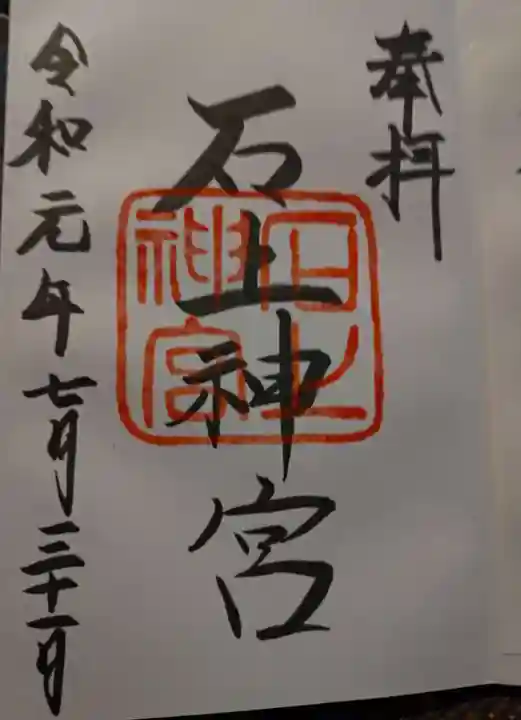 奉拝
石上神宮
石上
神宮
令和元年七月三十一日